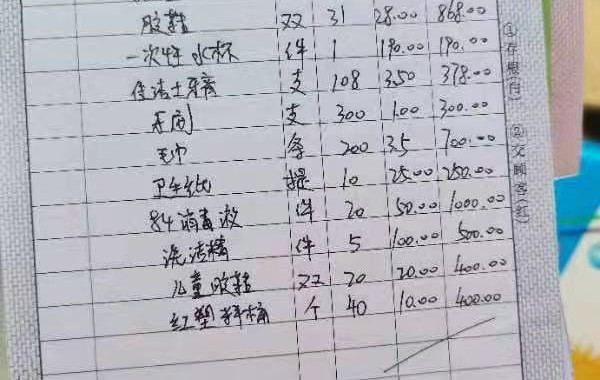 胶鞋 双 31 28.00 868.00
一次性水杯 件 1 190.00 190.00
佳洁士牙膏 支 108 3.50 378.00
牙刷 支 300 1.00 300.00
毛巾 条 200 3.5 700.00
卫生纸 提 10 25.00 250.00
84消毒液 件 20 50.00 1000.00
洗洁精 件 5 100.00 500.00
儿童胶鞋 双 20 20.00 400.00
红塑料桶 个 40 10.00 400.00
①存根(白) ②交顾客(红)